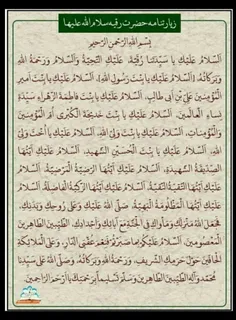 زیارتنامه حضرت رقیه سلام الله علیها
بِسْمِ اللهِ الرَّحْمنِ الرَّحیمِ
اَلسَّلامُ عَلَیْکِ یا سَیِّدَتَنا رُقَیَّةَ، عَلَیْکِ التَّحِیَّةُ وَالسَّلامُ وَرَحْمَةُ اللهِ
وَبَرَکاتُهُ، اَلسَّلامُ عَلَیْکِ یا بِنْتَ رَسُولِ اللهِ، اَلسَّلامُ عَلَیْکِ یا بِنْتَ اَمیرِ
الْمُؤْمِنینَ عَلِیِّ بْنِ اَبی طالِبٍ، اَلسَّلامُ عَلَیْکِ یا بِنْتَ فاطِمَةَ الزَّهْراءِ سَیِّدَةِ
نِساءِ الْعالَمینَ، اَلسَّلامُ عَلَیْکِ یا بِنْتَ خَدیجَةَ الْکُبْری اُمِّ الْمُؤْمِنینَ
وَالْمُؤْمِناتِ، اَلسَّلامُ عَلَیْکِ یا بِنْتَ وَلِیِّ اللهِ، اَلسَّلامُ عَلَیْکِ یا اُخْتَ وَلِیِّ
اللهِ، اَلسَّلامُ عَلَیْکِ یا بِنْتَ الْحُسَیْنِ الشَّهیدِ، اَلسَّلامُ عَلَیْکِ اَیَّتُهَا
الصِّدّیقَةُ الشَّهیدَةُ، اَلسَّلامُ عَلَیْکِ اَیَّتُهَا الرَّضِیَّةُ الْمَرْضِیَّةُ، اَلسَّلامُ
عَلَیْکِ اَیَّتُهَا التَّقِیَّةُ النَّقِیَّةُ، اَلسَّلامُ عَلَیْکِ اَیَّتُهَا الزَّکِیَّةُ الْفاضِلَةُ، اَلسَّلامُ
عَلَیْکِ اَیَّتُهَا الْمَظْلُومَةُ الْبَهِیَّةُ، صَلَّی اللهُ عَلَیْکِ وَعَلی رُوحِکِ وَبَدَنِکِ،
فَجَعَلَ اللهُ مَنْزِلَکِ وَمَأْواکِ فِی الْجَنَّةِ مَعَ آبائِکِ وَاَجْدادِکِ، الطَّیِّبینَ الطّاهِرینَ
الْمَعْصُومینَ، اَلسَّلامُ عَلَیْکُمْ بِما صَبَرْتُمْ فَنِعْمَ عُقْبَی الدّارِ، وَعَلَی الْمَلائِکَةِ
الْحافّینَ حَوْلَ حَرَمِکِ الشَّریفِ، وَرَحْمَةُ اللهِ وَبَرَکاتُهُ، وَصَلَّی اللهُ عَلی سَیِّدِنا
مُحَمَّدٍ وَآلِهِ الطَّیِّبینَ الطّاهِرینَ وَسَلَّمَ تَسْلیماً بِرَحْمَتِکَ یا اَرْحَمَ الرّاحِمینَ